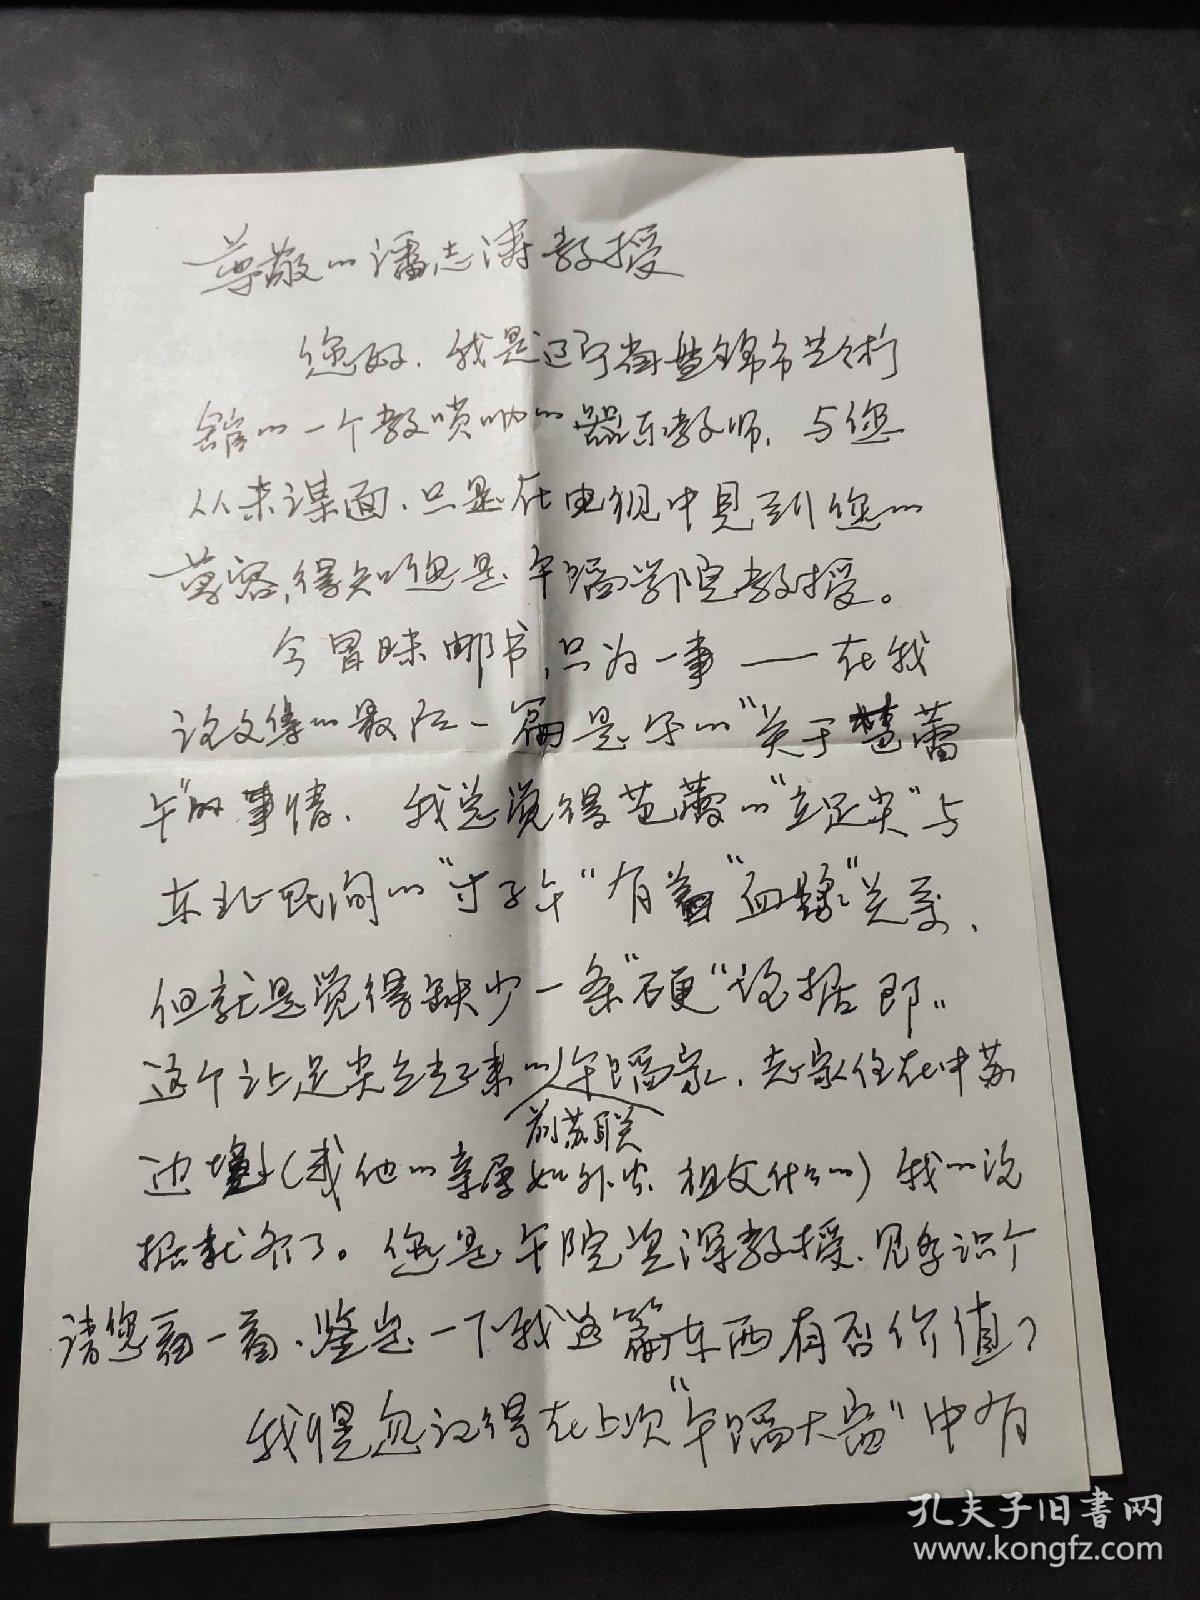 尊敬的潘志涛教授
您好、我是辽河畔盘锦市艺術
馆的一个教唢呐的器乐教师、与您
从未谋面、只是在电视中見到您的
尊容,得知您是午蹈学院教授。
今冒昧邮书,只为一事——在我
论文集的最后一篇是写的"关于芭蕾
午"的事情、我总觉得芭蕾的"立足尖"与
东北民间的"寸子午"有着"血缘"关系、
但就是觉得缺少一条"硬"证据即:
这个让足尖立起来的前苏联午蹈家、老家住在中苏
边境上(或他的亲属如外公、祖父什么的)我的论
据就够了。您是午院资深教授、见多识广
请您看一看、鉴定一下我这篇东西有否价值?
我恍忽记得在上次"午蹈大赛"中有
孔夫子旧書网
www.kongfz.com